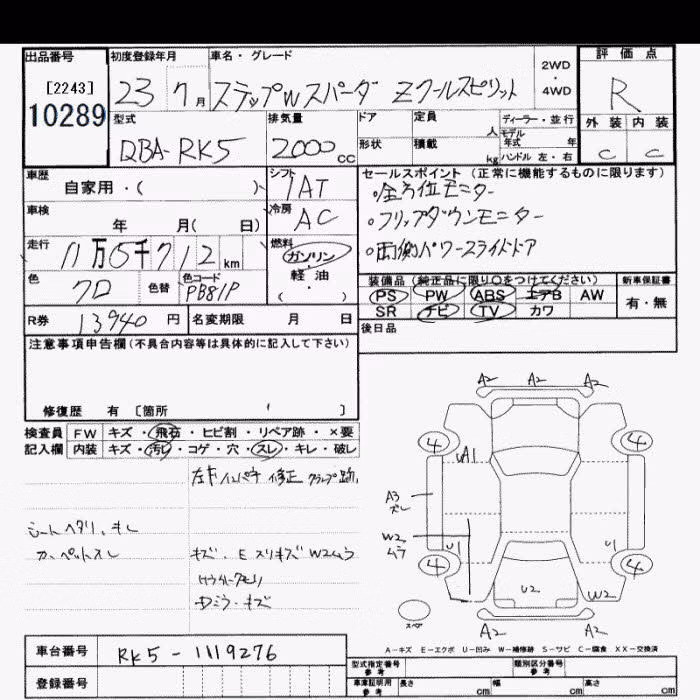 出品番号 初度登録年月 車名・グレード 評価点
[2243] 10289
23 7月 ステップWスパーダ Zクールスピリット 2WD・4WD R
型式 排気量 ドア 定員 人 ディーラー・並行 外装 内装
QBA-RK5 2000cc 形状 積載 kg モデル年式 年 ハンドル 左・右 C C
車歴 自家用・( ) シフト 1AT
セールスポイント(正常に機能するものに限ります)
・全方位モニター
・フリップダウンモニター
・両側パワースライドドア
車検 年 月( 日) 冷房 AC
走行 11万6千712km 燃料 ガソリン・軽油・( )
色 クロ 色替 色コード PB81P
装備品(純正品に限り○をつけてください) 新車保証書
PS PW ABS エアB AW 有・無
SR ナビ TV カワ
R券 13940円 名変期限 月 日
後日品
注意事項申告欄(不具合内容等は具体的に記入して下さい)
修復歴 有 [箇所 ]
検査員 FW キズ・飛石・ヒビ割・リペア跡・×要
記入欄 内装 キズ・汚レ・コゲ・穴・スレ・キレ・破レ
左右インパネ 修正 クランプ跡
シートヘタリ、キレ
カーペットスレ
キズ・E スリキズ W2ムラ
ドミラーキズ
A2 A2 A2
4 4
A1
A3 スレ
W2 ムラ
U1 U1
4 4
U2 W2
スペア
A2 A2
A-キズ E-エクボ U-凹み W-補修跡 S-サビ C-腐食 XX-交換済
車台番号 RK5-1119276
登録番号
型式指定番号 参考 類別区分番号 参考
車庫証明用 参考 長さ cm 幅 cm 高さ cm